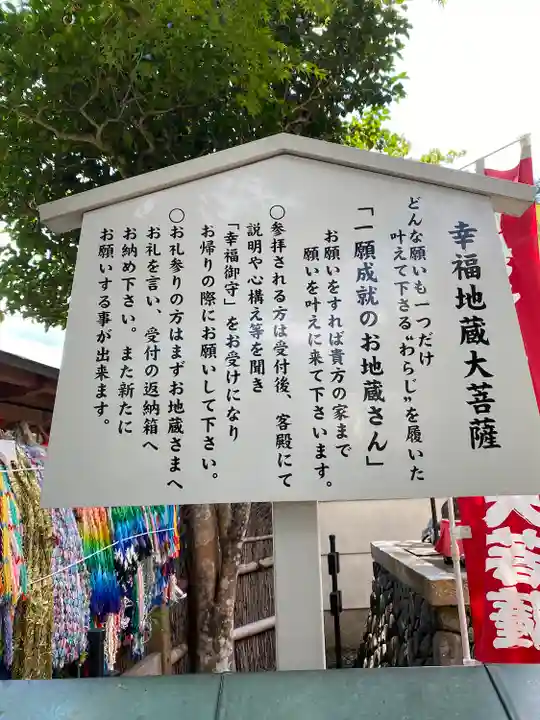 幸福地蔵大菩薩
どんな願いも一つだけ
叶えて下さる〝わらじ〟を履いた
「一願成就のお地蔵さん」
お願いをすれば貴方の家まで
願いを叶えに来て下さいます。
〇参拝される方は受付後、客殿にて
説明や心構え等を聞き
「幸福御守」をお受けになり
お帰りの際にお願いして下さい。
〇お礼参りの方はまずお地蔵さまへ
お礼を言い、受付の返納箱へ
お納め下さい。また新たに
お願いする事が出来ます。
大菩薩